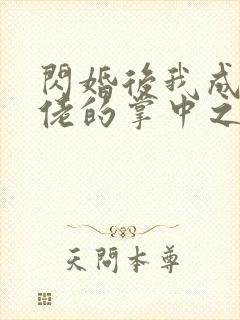 閃婚後我成
佬的掌中之
天問本尊